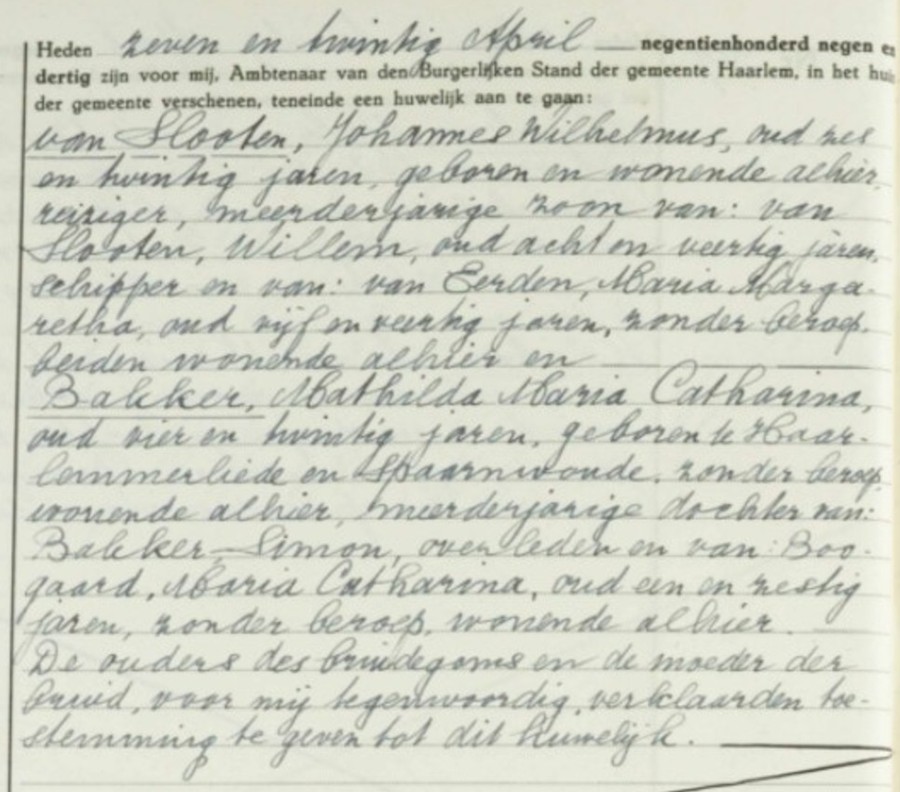 Heden zeven en twintig April — negentienhonderd negen en
dertig zijn voor mij, Ambtenaar van den Burgerlijken Stand der gemeente Haarlem, in het hui
der gemeente verschenen, teneinde een huwelijk aan te gaan:
van Slooten, Johannes Wilhelmus, oud zes
en twintig jaren, geboren en wonende alhier,
reiziger, meerderjarige zoon van: van
Slooten, Willem, oud acht en veertig jaren,
schipper en van: van Eerden, Maria Marga-
retha, oud vijf en veertig jaren, zonder beroep,
beiden wonende alhier en
Bakker, Mathilda Maria Catharina,
oud vier en twintig jaren, geboren te Haar-
lemmerliede en Spaarnwoude, zonder beroep,
wonende alhier, meerderjarige dochter van:
Bakker, Simon, overleden en van: Boo-
gaard, Maria Catharina, oud een en zestig
jaren, zonder beroep, wonende alhier.
De ouders des bruidegoms en de moeder der
bruid, voor mij tegenwoordig, verklaarden toe-
stemming te geven tot dit huwelijk.